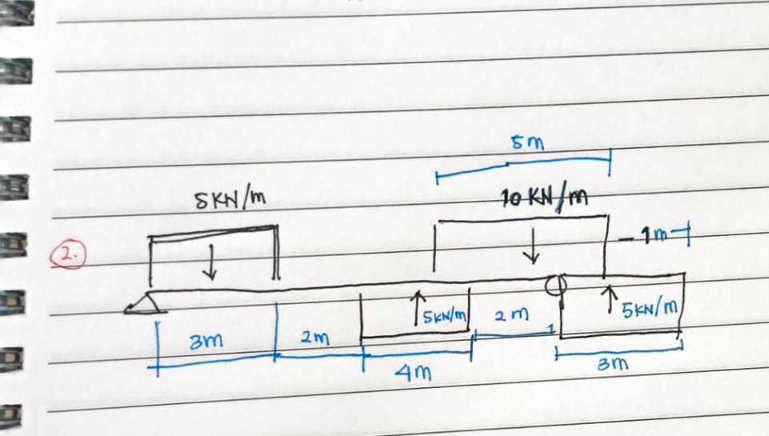 5m
5KN/m
10 KN/m
2.
- 1m
5KN/m
2m
5KN/m
3m
2m
4m
3m